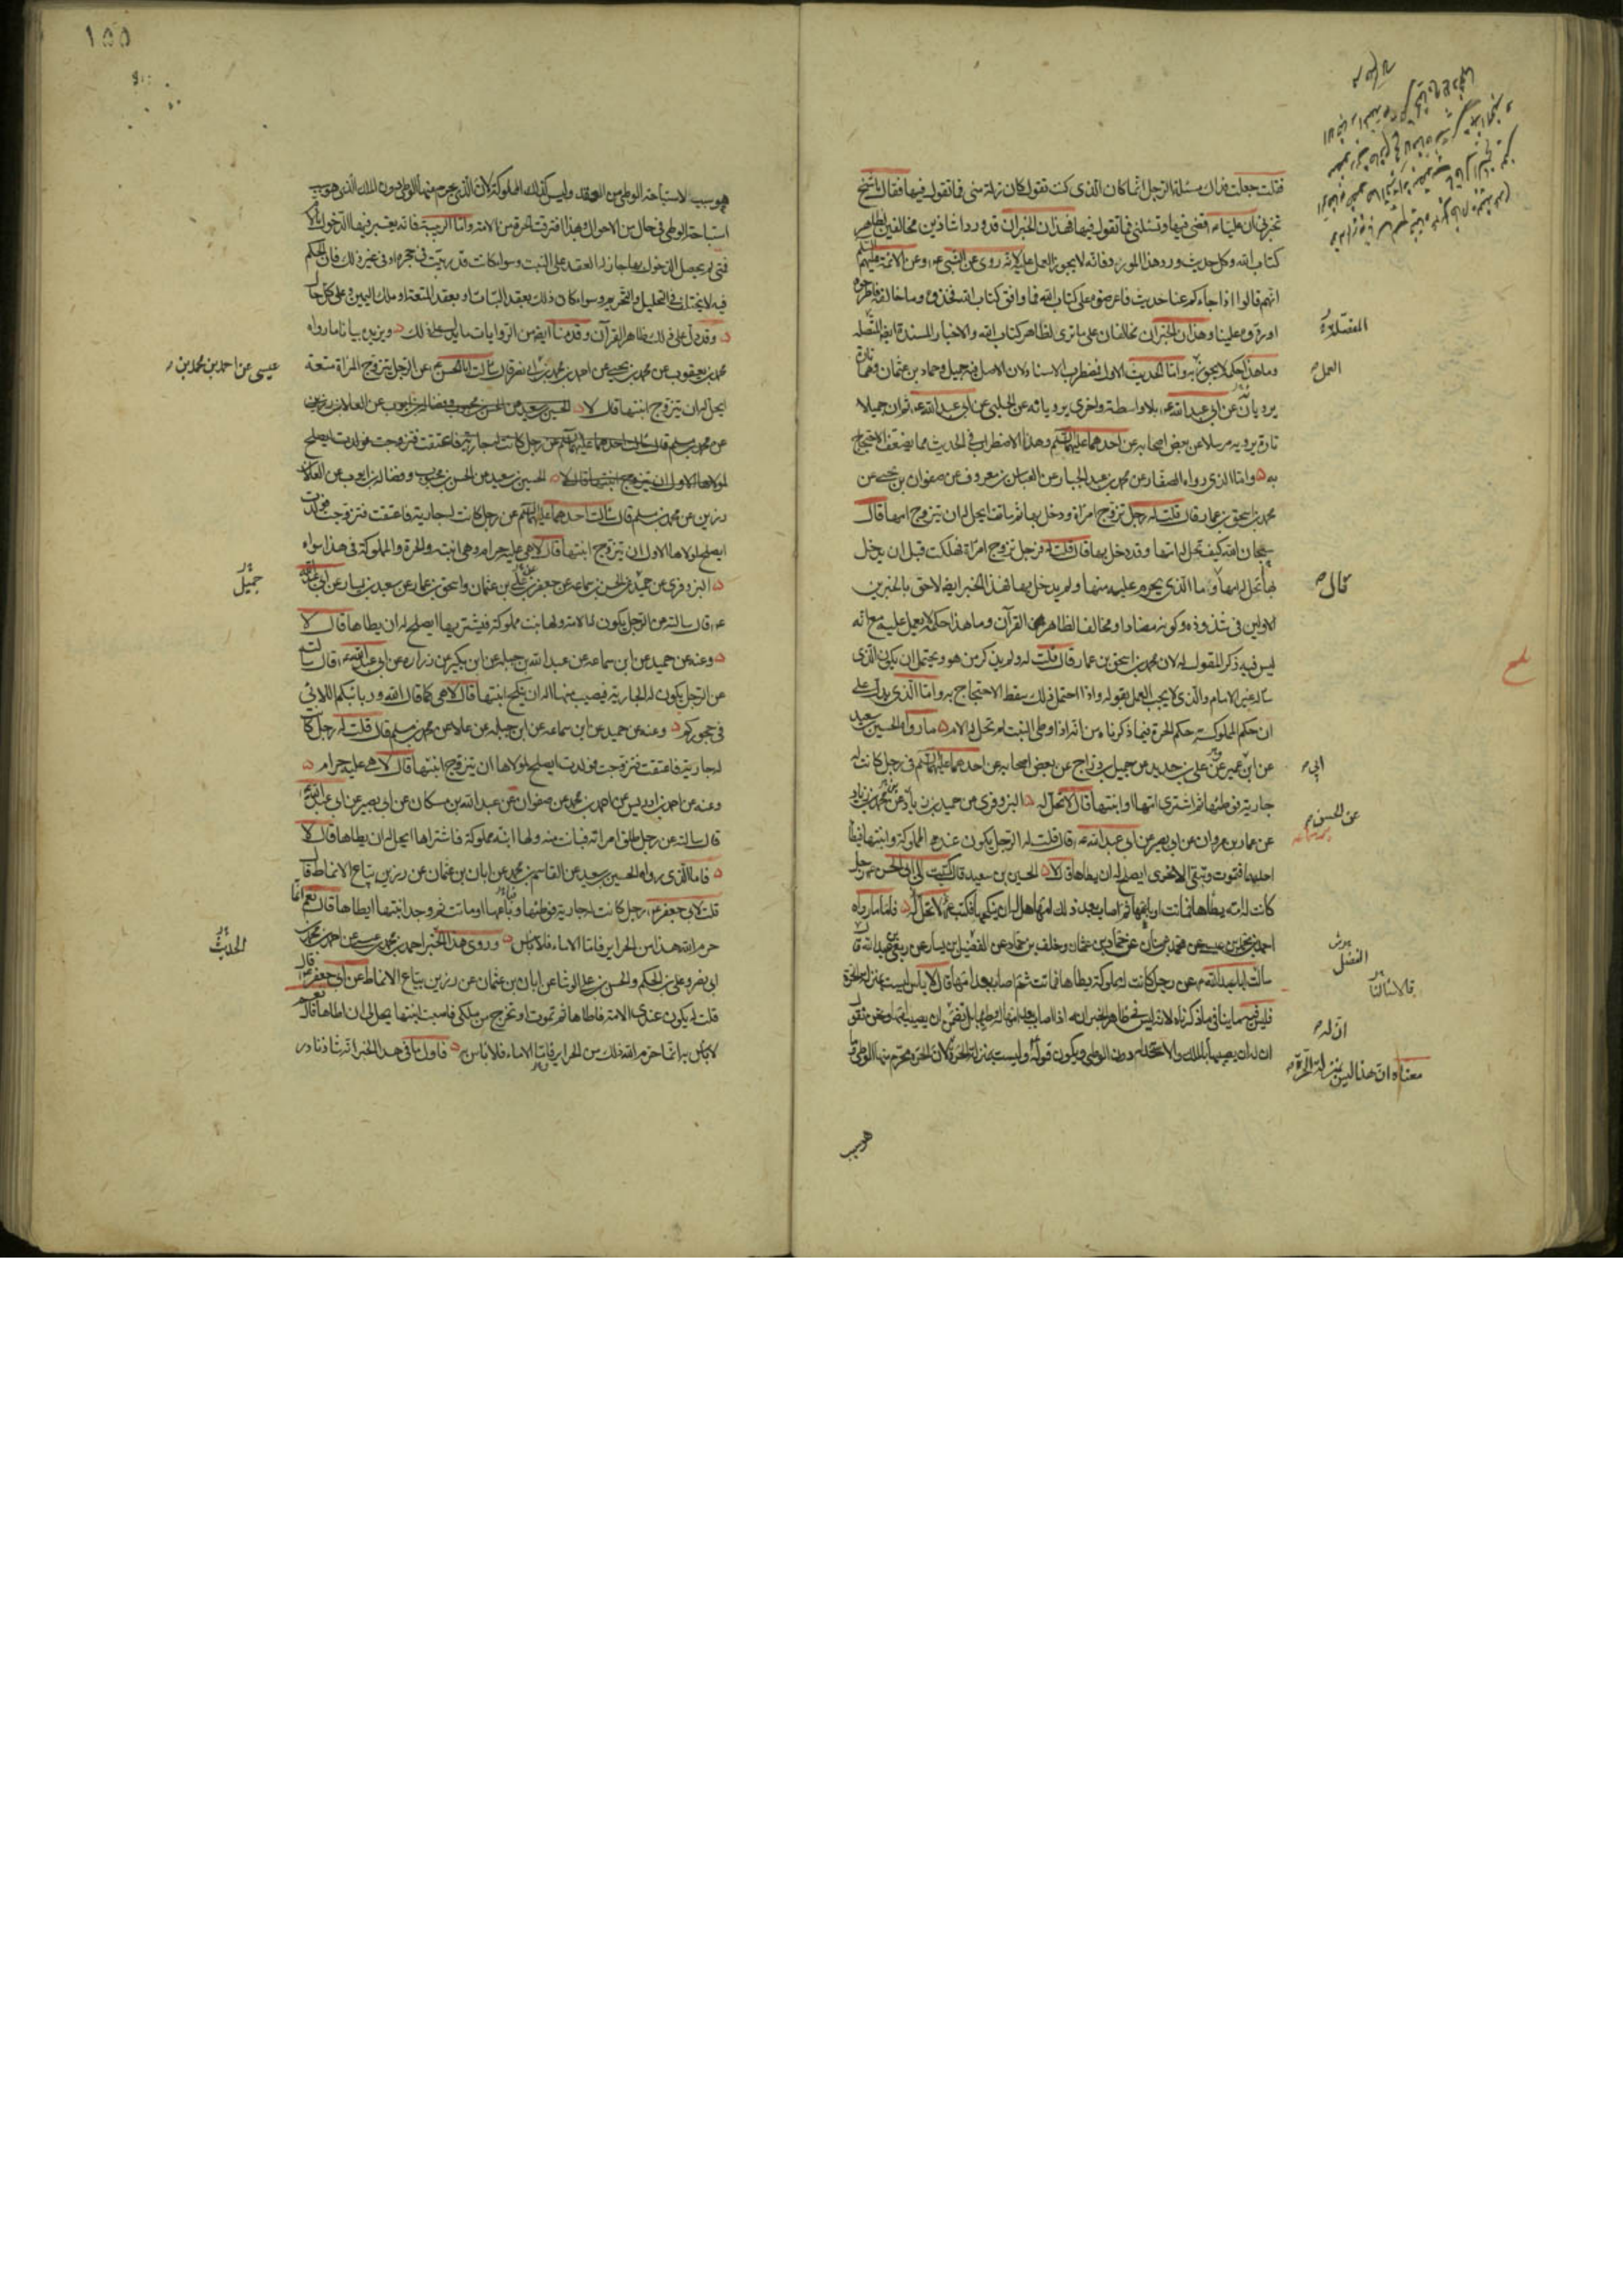 فقلت جعلت فداك مسئلة الرجل انما كان الذى كنت تقول كان زلة منى فما تقول فيها فقال يا شيخ
تخبرنى ان عليا ع قضى فيها وتسئلنى فما تقول فيها فهذان الخبران قد وردا شاذين مخالفين لظاهر
كتاب الله وكل حديث ورد هذا المورد فانه لا يجوز العمل عليه لانه روى عن النبى ص وعن الائمة عليهم السلم
انهم قالوا اذا جاءكم عنا حديث فاعرضوه على كتاب الله فما وافق كتاب الله فخذوه وما خالفه فاطرحوه
او ردوه علينا وهذان الخبران مخالفان على ما ترى لظاهر كتاب الله والاخبار المسندة ايضا المفصلة
وما هذا حكمه لا يجوز به واما الحديث الاول فمضطرب الاسناد لان الاصل فيه جميل وحماد بن عثمان وهما تارة
يرويانه عن ابى عبد الله ع بلا واسطة واخرى يرويانه عن الحلبى عن ابى عبد الله ع ثم ان جميلا
تارة يرويه مرسلا عن بعض اصحابه عن احدهما عليهما السلم وهذا الاضطراب فى الحديث مما يضعف الاحتجاج
به واما الذى رواه الصفار عن محمد بن عبد الجبار عن العباس بن معروف عن صفوان بن يحيى عن
محمد بن اسحق بن عمار قال قلت له رجل تزوج امراة ودخل بها ثم ماتت ايحل له ان يتزوج امها قال
سبحان الله كيف تحل له امها وقد دخل بها قال قلت له فرجل تزوج امراة فهلكت قبل ان يدخل
بها تحل له امها وما الذى يحرم عليه منها ولم يدخل بها فهذا الخبر ايضا لاحق بالخبرين
الاولين فى شذوذه وكونه مضادا ومخالفا لظاهر القرآن وما هذا حكمه لا يعمل عليه مع انه
ليس فيه ذكر المقول له لان محمد بن اسحق بن عمار قال قلت له ولم يذكر من هو ويحتمل ان يكون الذى
ساله غير الامام والذى لا يجب العمل بقوله واذا احتمل ذلك سقط الاحتجاج به واما الذى يدل على
ان حكم المملوكة حكم الحرة فيما ذكرناه من انه اذا وطى البنت لم تحل له الام ما رواه الحسين بن سعيد
عن ابن عمير عن على بن حديد عن جميل بن دراج عن بعض اصحابه عن احدهما عليهما السلم فى رجل كانت له
جارية فوطئها ثم اشترى امها او ابنتها قال لا تحل له البزوفرى عن حميد بن زياد عن محمد بن زياد
عن عمار بن مروان عن ابى بصير عن ابى عبد الله ع قال قلت له الرجل يكون عنده المملوكة وابنتها فيطا
احديهما فتموت وتبقى الاخرى ايصلح له ان يطاها قال لا الحسين بن سعيد قال كتبت الى ابى الحسن ع رجل
كانت له امة يطاها فماتت او باعها ثم اصاب بعد ذلك امها هل له ان ينكحها فكتب ع لا تحل له فاما ما رواه
احمد بن محمد بن عيسى عن محمد بن سنان عن حماد بن عثمان وخلف بن حماد عن الفضيل بن يسار عن ربعى بن عبد الله قال
سالت ابا عبد الله ع عن رجل كانت له مملوكة يطاها فماتت ثم اصاب بعد امها قال لا باس ليست بمنزلة الحرة
فليس فيهما ينافى ما ذكرناه لانه ليس فى ظاهر الخبر انه اذا اصاب بعد امها له وطيها بل تضمن ان يصيب امها ونحن نقول
ان له ان يصيبها بالملك والاستخدام دون الوطى ويكون قوله وليست بمنزلة الحرة لان الحرة محرم منها الوطى وما
المفصلة
العمل
قال
ابى
عن الحسن
الفضل
قالا سالنا
ان له
معناه ان هذا ليس بمنزلة الحرة
هو سبب
١٥٥
هو سبب لاستباحة الوطى من العقد وليس كذلك المملوكة لان الذى يحرم منها الوطى دون الملك الذى هو سبب
استباحة الوطى فى حال من الاحوال وبهذا افترقت الحرة من الامة واما الربيبة فانه يعتبر فيها الدخول بالام
فمتى لم يحصل الدخول بها جاز له العقد على البنت وسواء كانت قد ربيت فى حجره او فى غيره لك فان الحكم
فيه لا يختلف فى التحليل والتحريم وسواء كان ذلك بعقد البتات او بعقد المتعة او ملك اليمين وعلى كل حال
وقد دل على ذلك ظاهر القرآن وقدمنا ايضا من الروايات ما يدل على ذلك ويزيده بيانا ما رواه
محمد بن يعقوب عن محمد بن يحيى عن احمد بن محمد بن ابى نصر قال سالت ابا الحسن ع عن الرجل يتزوج المراة متعة
ايحل له ان يتزوج ابنتها قال لا الحسين بن سعيد عن الحسن بن محبوب وفضالة بن ايوب عن العلا بن رزين
عن محمد بن مسلم قال سالت احدهما عليهما السلم عن رجل كانت له جارية فاعتقت فتزوجت فولدت ايصلح
لمولاها الاول ان يتزوج ابنتها قال لا الحسين بن سعيد عن الحسن بن محبوب وفضالة بن ايوب عن العلا بن
رزين عن محمد بن مسلم قال سالت احدهما عليهما السلم عن رجل كانت له جارية فاعتقت فتزوجت فولدت
ايصلح لمولاها الاول ان يتزوج ابنتها قال لا هى عليه حرام وهى ابنته والحرة والمملوكة فى هذا سواء
البزوفرى عن حميد عن الحسن بن سماعة عن جعفر بن على بن عثمان واسحق بن عمار عن سعيد بن يسار عن ابى عبد الله
ع قال سالته عن الرجل يكون له الامة ولها بنت مملوكة فيشتريها ايصلح له ان يطاها قال لا
وعنه عن حميد عن ابن سماعه عن عبد الله بن جبله عن ابن بكير عن زراره عن ابى عبد الله ع قال سالته
عن الرجل يكون له الجارية فيصيب منها اله ان ينكح ابنتها قال لا هى كما قال الله وربائبكم اللاتى
فى حجوركم وعنه عن حميد عن ابن سماعه عن ابن جبله عن علا عن محمد بن مسلم قال قلت له رجل كانت
له جارية فاعتقت فتزوجت فولدت ايصلح لمولاها ان يتزوج ابنتها قال لا هى عليه حرام
وعنه عن احمد بن ادريس عن احمد بن محمد عن صفوان عن عبد الله بن مسكان عن ابى بصير عن ابى عبد الله ع
قال سالته عن رجل طلق امراته فبانت منه ولها ابنه مملوكة فاشتراها ايحل له ان يطاها قال لا
فاما الذى رواه الحسين بن سعيد عن القاسم بن محمد عن ابان بن عثمان عن رزين بياع الانماط قال
قلت لابى جعفر ع رجل كانت له جارية فوطئها وباعها او ماتت ثم وجد ابنتها ايطاها قال نعم انما
حرم الله هذا من الحراير فاما الاماء فلا باس وروى هذا الخبر احمد بن محمد بن عيسى عن احمد بن محمد بن
ابى نصر وعلى بن الحكم والحسن بن على الوشا عن ابان بن عثمان عن رزين بياع الانماط عن ابى جعفر ع قال
قلت له يكون عندى الامة فاطاها ثم تموت او تخرج من ملكى فاصبت ابنتها يحل لى ان اطاها قال نعم
لا باس به انما حرم الله ذلك من الحراير فاما الاماء فلا باس به فاول ما فى هذا الخبر انه شاذ نادر
عيسى عن احمد بن محمد بن
جميل
الحديث